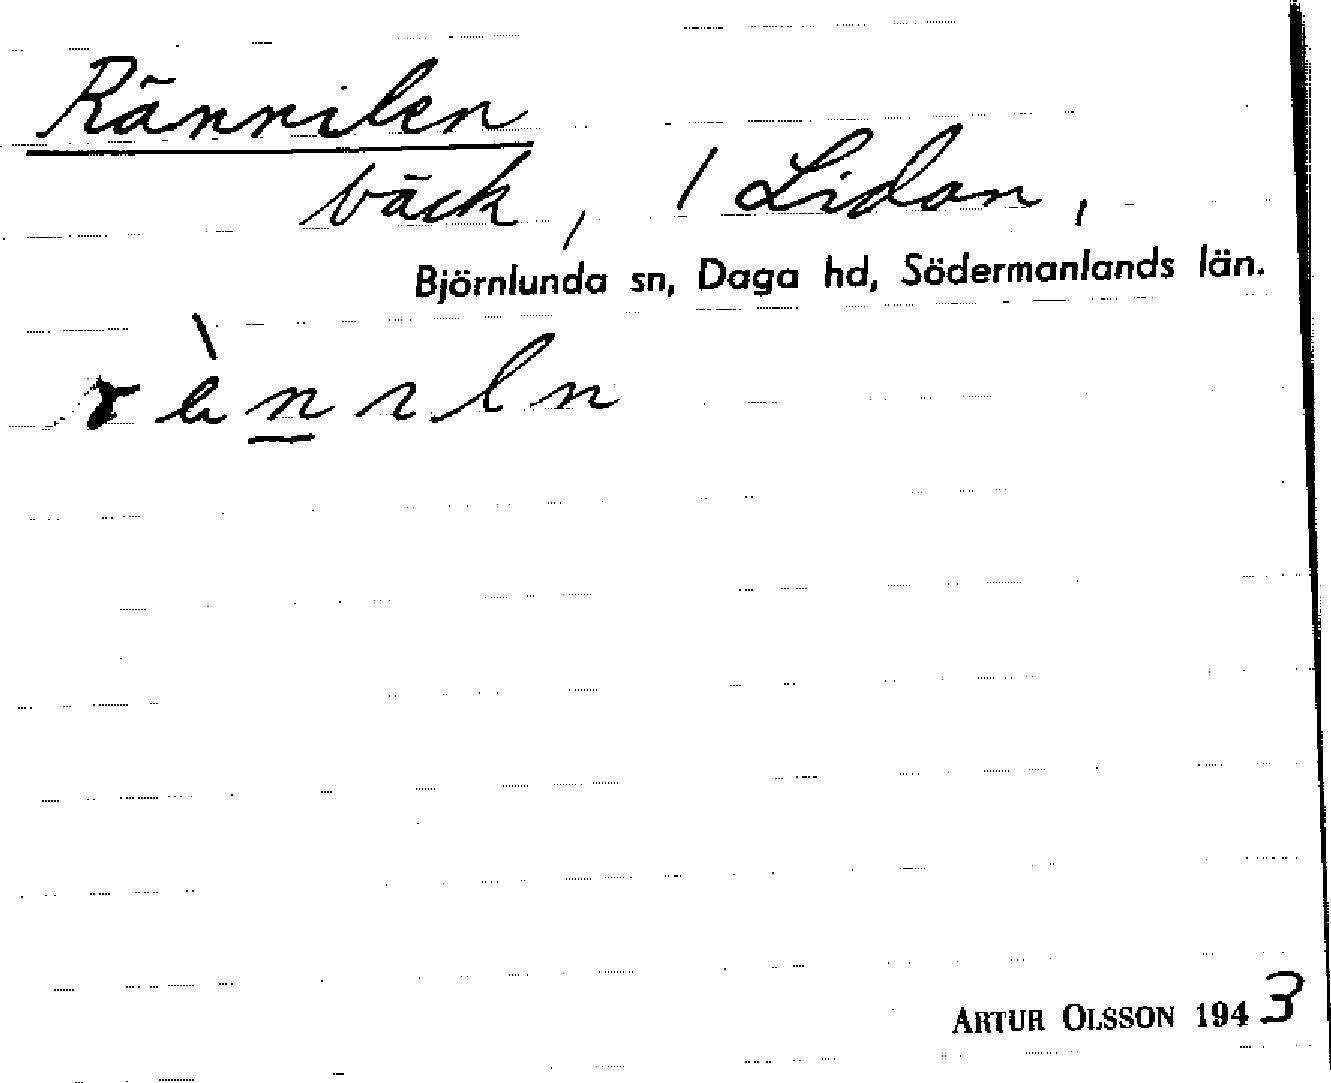 Rännilen
bäck, / Lidan,
Björnlunda sn, Daga hd, Södermanlands län.
ARTUR OLSSON 1943